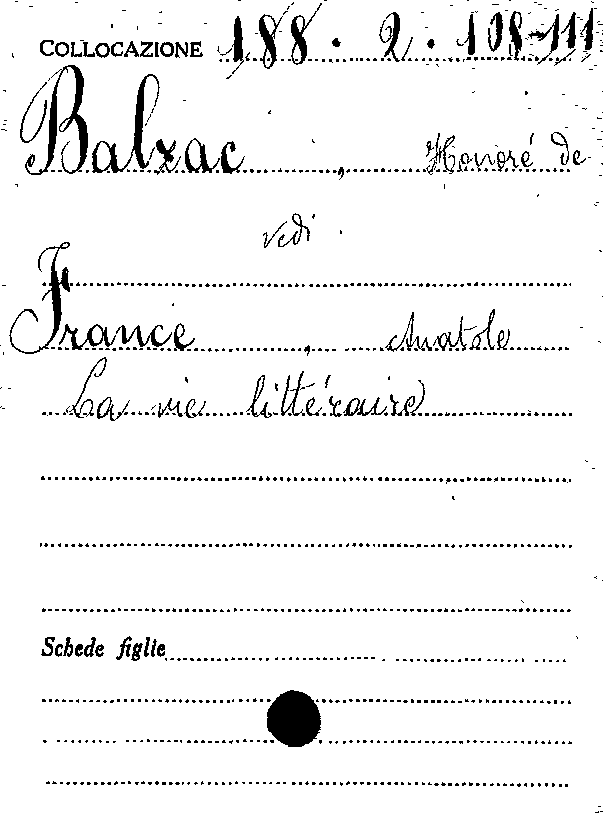 COLLOCAZIONE 188. 2. 108-111
Balzac, Honoré de
vedi
France, Anatole
La vie littéraire
Schede figlie